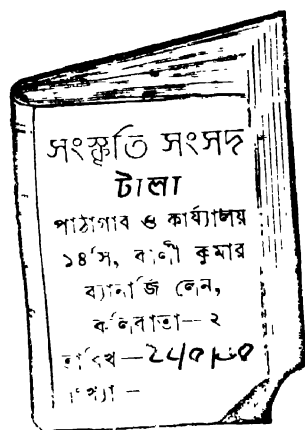 সংস্কৃতি সংসদ
টালা
পাঠাগাব ও কার্য্যালয়
১৪ সি, বাণী কুমার
ব্যানার্জি লেন,
কলিকাতা—২
তারিখ—
সংখ্যা —